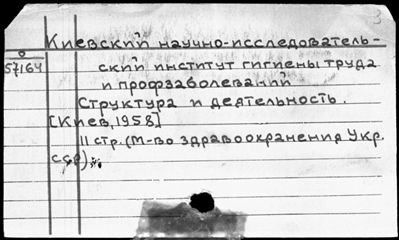 3
Киевский научно-исследователь-
о
57164
ский институт гигиены труда
и профзаболеваний
Структура и деятельность.
[Киев, 1958]
11 стр. (М-во здравоохранения Укр.
ССР).